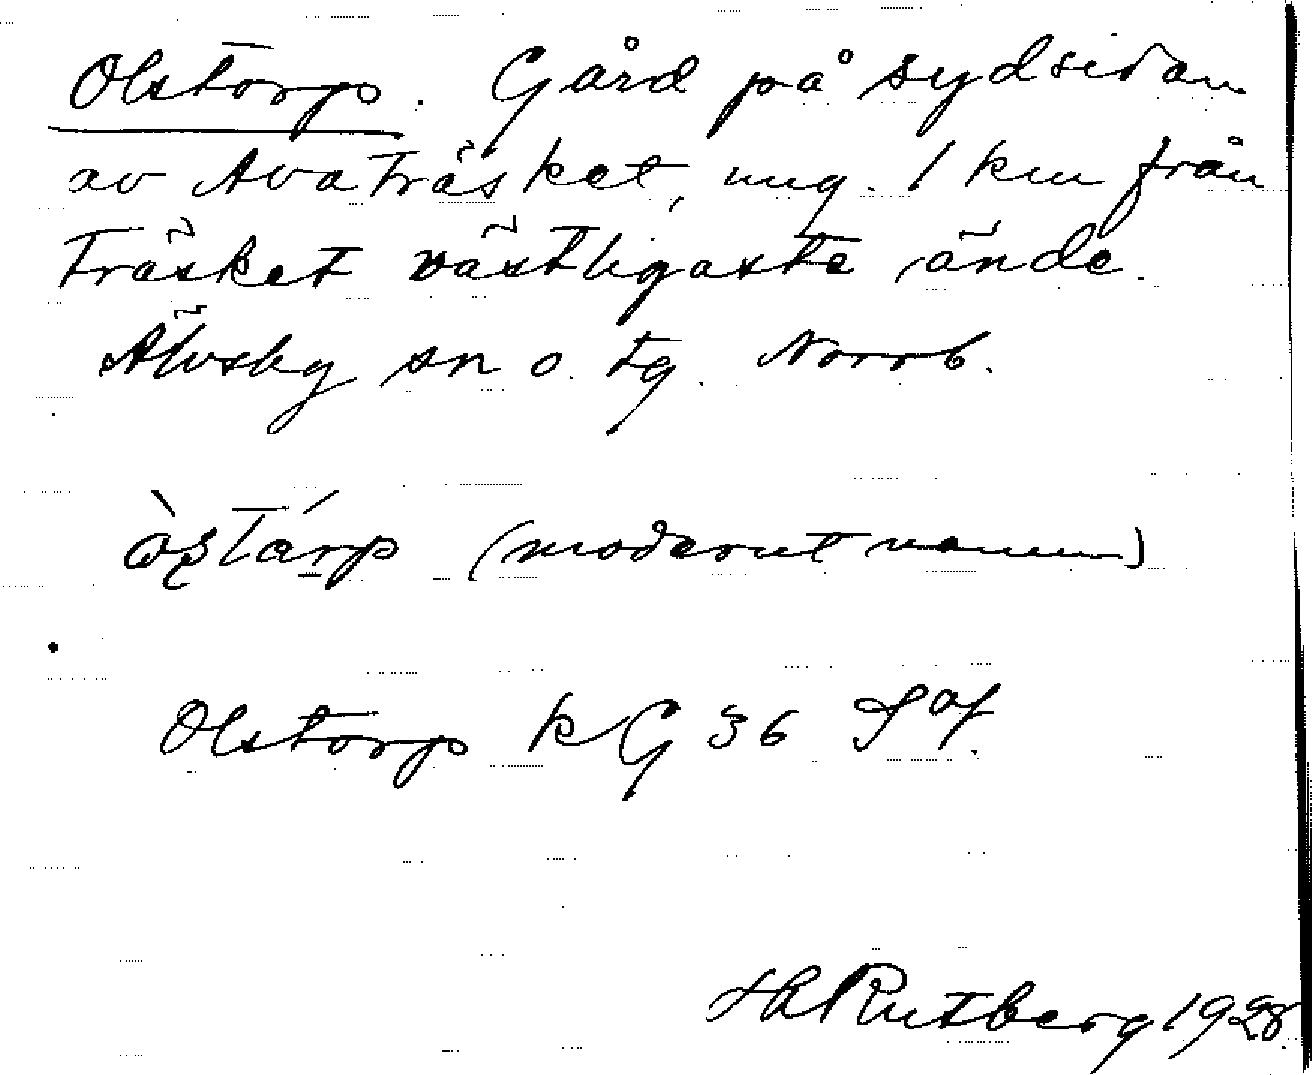 Olstorp. Gård på sydsidan
av Avaträsket, ung. 1 km från
träsket västligaste ände.
Älvsby sn o. tg. Norrb.
(modernt namn)
Olstorp kG 36 Söf.
Rutberg 1928